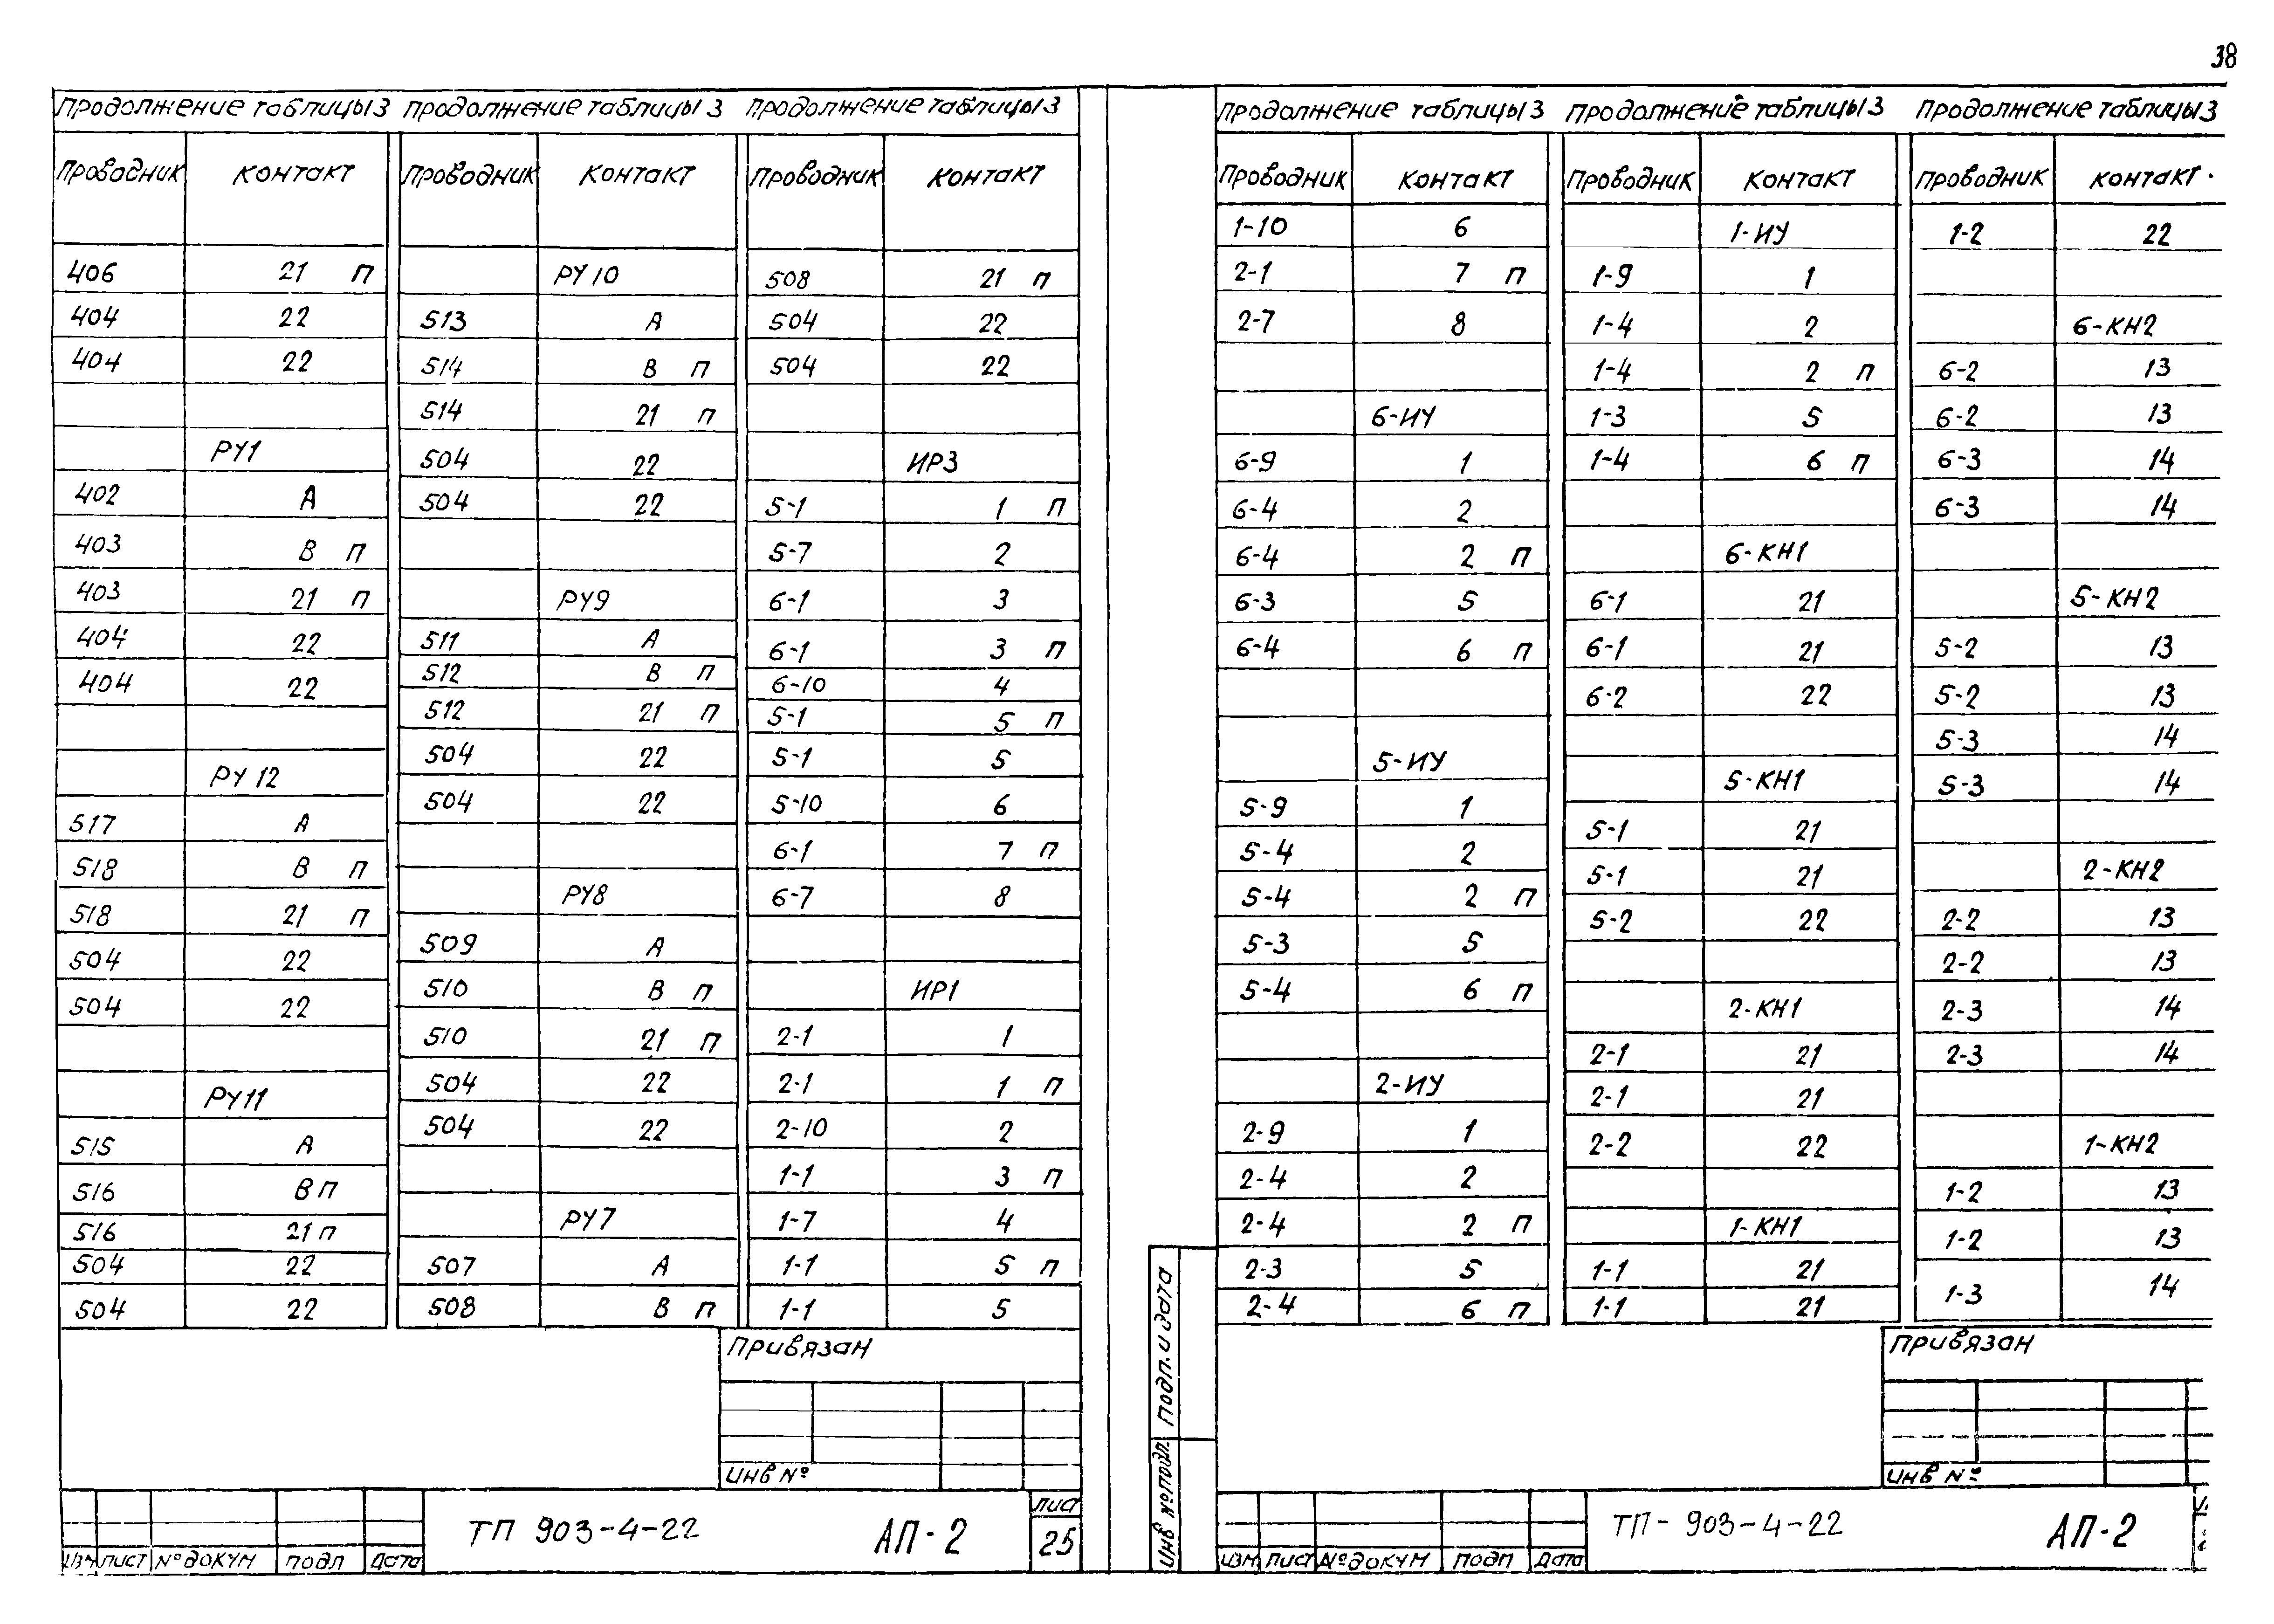 38
Продолжение таблицы 3
Проводник Контакт
406 21 П
404 22
404 22
РУ1
402 А
403 В П
403 21 П
404 22
404 22
РУ12
517 А
518 В П
518 21 П
504 22
504 22
РУ11
515 А
516 В П
516 21 П
504 22
504 22
Продолжение таблицы 3
Проводник Контакт
РУ10
513 А
514 В П
514 21 П
504 22
504 22
РУ9
511 А
512 В П
512 21 П
504 22
504 22
РУ8
509 А
510 В П
510 21 П
504 22
504 22
РУ7
507 А
508 В П
Продолжение таблицы 3
Проводник Контакт
508 21 П
504 22
504 22
ИР3
5-1 1 П
5-7 2
6-1 3
6-1 3 П
6-10 4
5-1 5 П
5-1 5
5-10 6
6-1 7 П
6-7 8
ИР1
2-1 1
2-1 1 П
2-10 2
1-1 3 П
1-7 4
1-1 5 П
1-1 5
Привязан
Инв №
Изм Лист № докум Подп Дата
ТП 903-4-22 АП-2
Лист
25
Продолжение таблицы 3
Проводник Контакт
1-10 6
2-1 7 П
2-7 8
6-ИУ
6-9 1
6-4 2
6-4 2 П
6-3 5
6-4 6 П
5-ИУ
5-9 1
5-4 2
5-4 2 П
5-3 5
5-4 6 П
2-ИУ
2-9 1
2-4 2
2-4 2 П
2-3 5
2-4 6 П
Продолжение таблицы 3
Проводник Контакт
1-ИУ
1-9 1
1-4 2
1-4 2 П
1-3 5
1-4 6 П
6-КН1
6-1 21
6-1 21
6-2 22
5-КН1
5-1 21
5-1 21
5-2 22
2-КН1
2-1 21
2-1 21
2-2 22
1-КН1
1-1 21
1-1 21
Продолжение таблицы 3
Проводник Контакт
1-2 22
6-КН2
6-2 13
6-2 13
6-3 14
6-3 14
5-КН2
5-2 13
5-2 13
5-3 14
5-3 14
2-КН2
2-2 13
2-2 13
2-3 14
2-3 14
1-КН2
1-2 13
1-2 13
1-3 14
Подп. и дата
Инв № подл.
Привязан
Инв №
Изм Лист № докум Подп Дата
ТП-903-4-22 АП-2